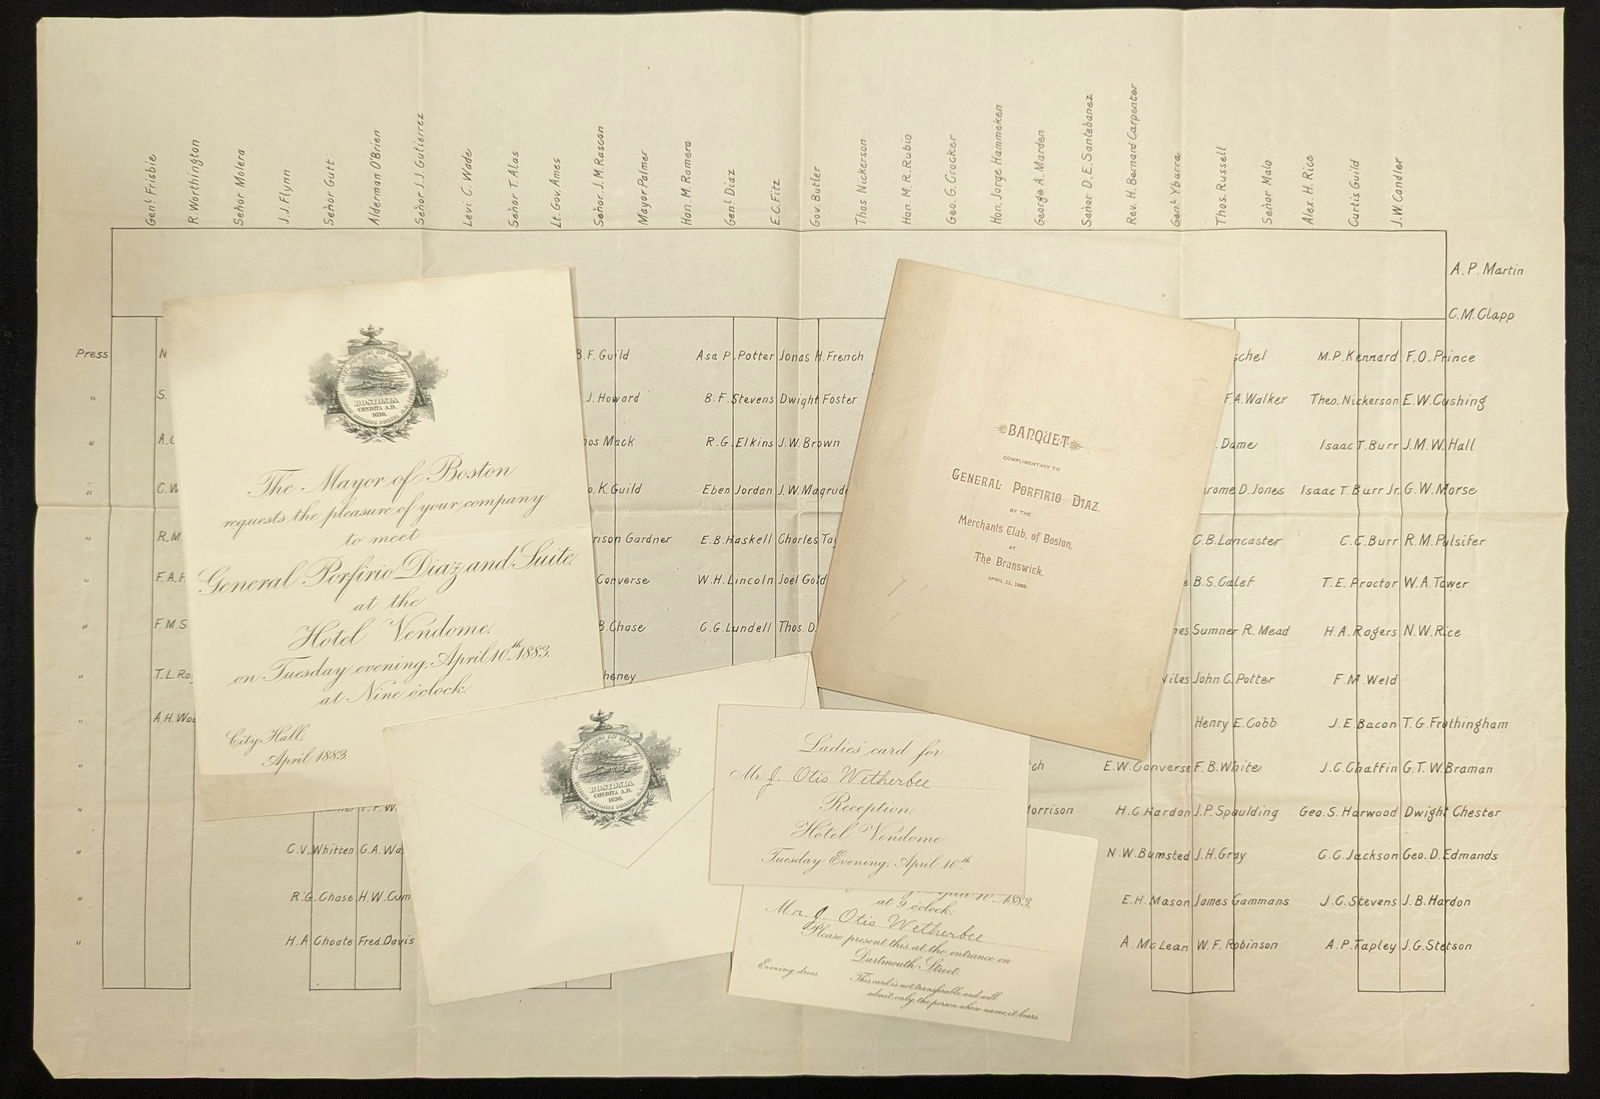 Genl. Frisbie
R. Worthington
Señor Molera
J. J. Flynn
Señor Gutt
Alderman O'Brien
Señor J. J. Gutierrez
Levi C. Wade
Señor T. Alas
Lt. Gov. Ames
Señor J. M. Rascon
Mayor Palmer
Hon. M. Romero
Genl. Diaz
E. C. Fitz
Gov. Butler
Thos Nickerson
Hon. M. R. Rubio
Geo. G. Crocker
Hon. Jorge Hammeken
George A. Marden
Señor D. E. Santebanez
Rev. H. Bernard Carpenter
Genl. Ybarra
Thos. Russell
Señor Malo
Alex. H. Rice
Curtis Guild
J. W. Candler
A. P. Martin
C. M. Clapp
Press N B. F. Guild Asa P. Potter Jonas H. French schel M. P. Kennard F. O. Prince
" S. J. Howard B. F. Stevens Dwight Foster F. A. Walker Theo. Nickerson E. W. Cushing
" A. G os Mack R. G. Elkins J. W. Brown . Dame Isaac T. Burr J. M. W. Hall
" C. W o. K. Guild Eben Jordan J. W. Magrude rome D. Jones Isaac T. Burr Jr. G. W. Morse
" R. M. rison Gardner E. B. Haskell Charles Tay C. B. Lancaster C. C. Burr R. M. Pulsifer
" F. A. Converse W. H. Lincoln Joel Gold e B. S. Calef T. E. Proctor W. A. Tower
" F. M. S B. Chase C. G. Lundell Thos. D. nes Sumner R. Mead H. A. Rogers N. W. Rice
" T. L. Ro heney Niles John C. Potter F. M. Weld
" A. H. Woo Henry E. Cobb J. E. Bacon T. G. Frothingham
tch E. W. Converse F. B. White J. C. Chaffin G. T. W. Braman
" orrison H. C. Hardon J. P. Spaulding Geo. S. Harwood Dwight Chester
" C. V. Whitten G. A. Wa N. W. Bumsted J. H. Gray C. C. Jackson Geo. D. Edmands
" R. G. Chase H. W. Cum E. H. Mason James Gammans J. C. Stevens J. B. Hardon
" H. A. Choate Fred. Davis A. McLean W. F. Robinson A. P. Tapley J. G. Stetson
BOSTONIA
CONDITA A.D.
1630.
The Mayor of Boston
requests the pleasure of your company
to meet
General Porfirio Diaz and Suite
at the
Hotel Vendome.
on Tuesday evening, April 10th 1883.
at Nine o'clock.
City Hall.
April 1883.
BANQUET
COMPLIMENTARY TO
GENERAL PORFIRIO DIAZ,
BY THE
Merchants Club, of Boston,
AT
The Brunswick.
APRIL 11, 1883.
BOSTONIA
CONDITA A.D.
1630.
Ladies' card for
Mr J. Otis Wetherbee
Reception.
Hotel Vendome
Tuesday Evening, April 10th
April 10th 1883.
at 9 o'clock.
Mr. J. Otis Wetherbee
Please present this at the entrance on
Dartmouth Street.
Evening dress.
This card is not transferable, and will
admit only the person whose name it bears.